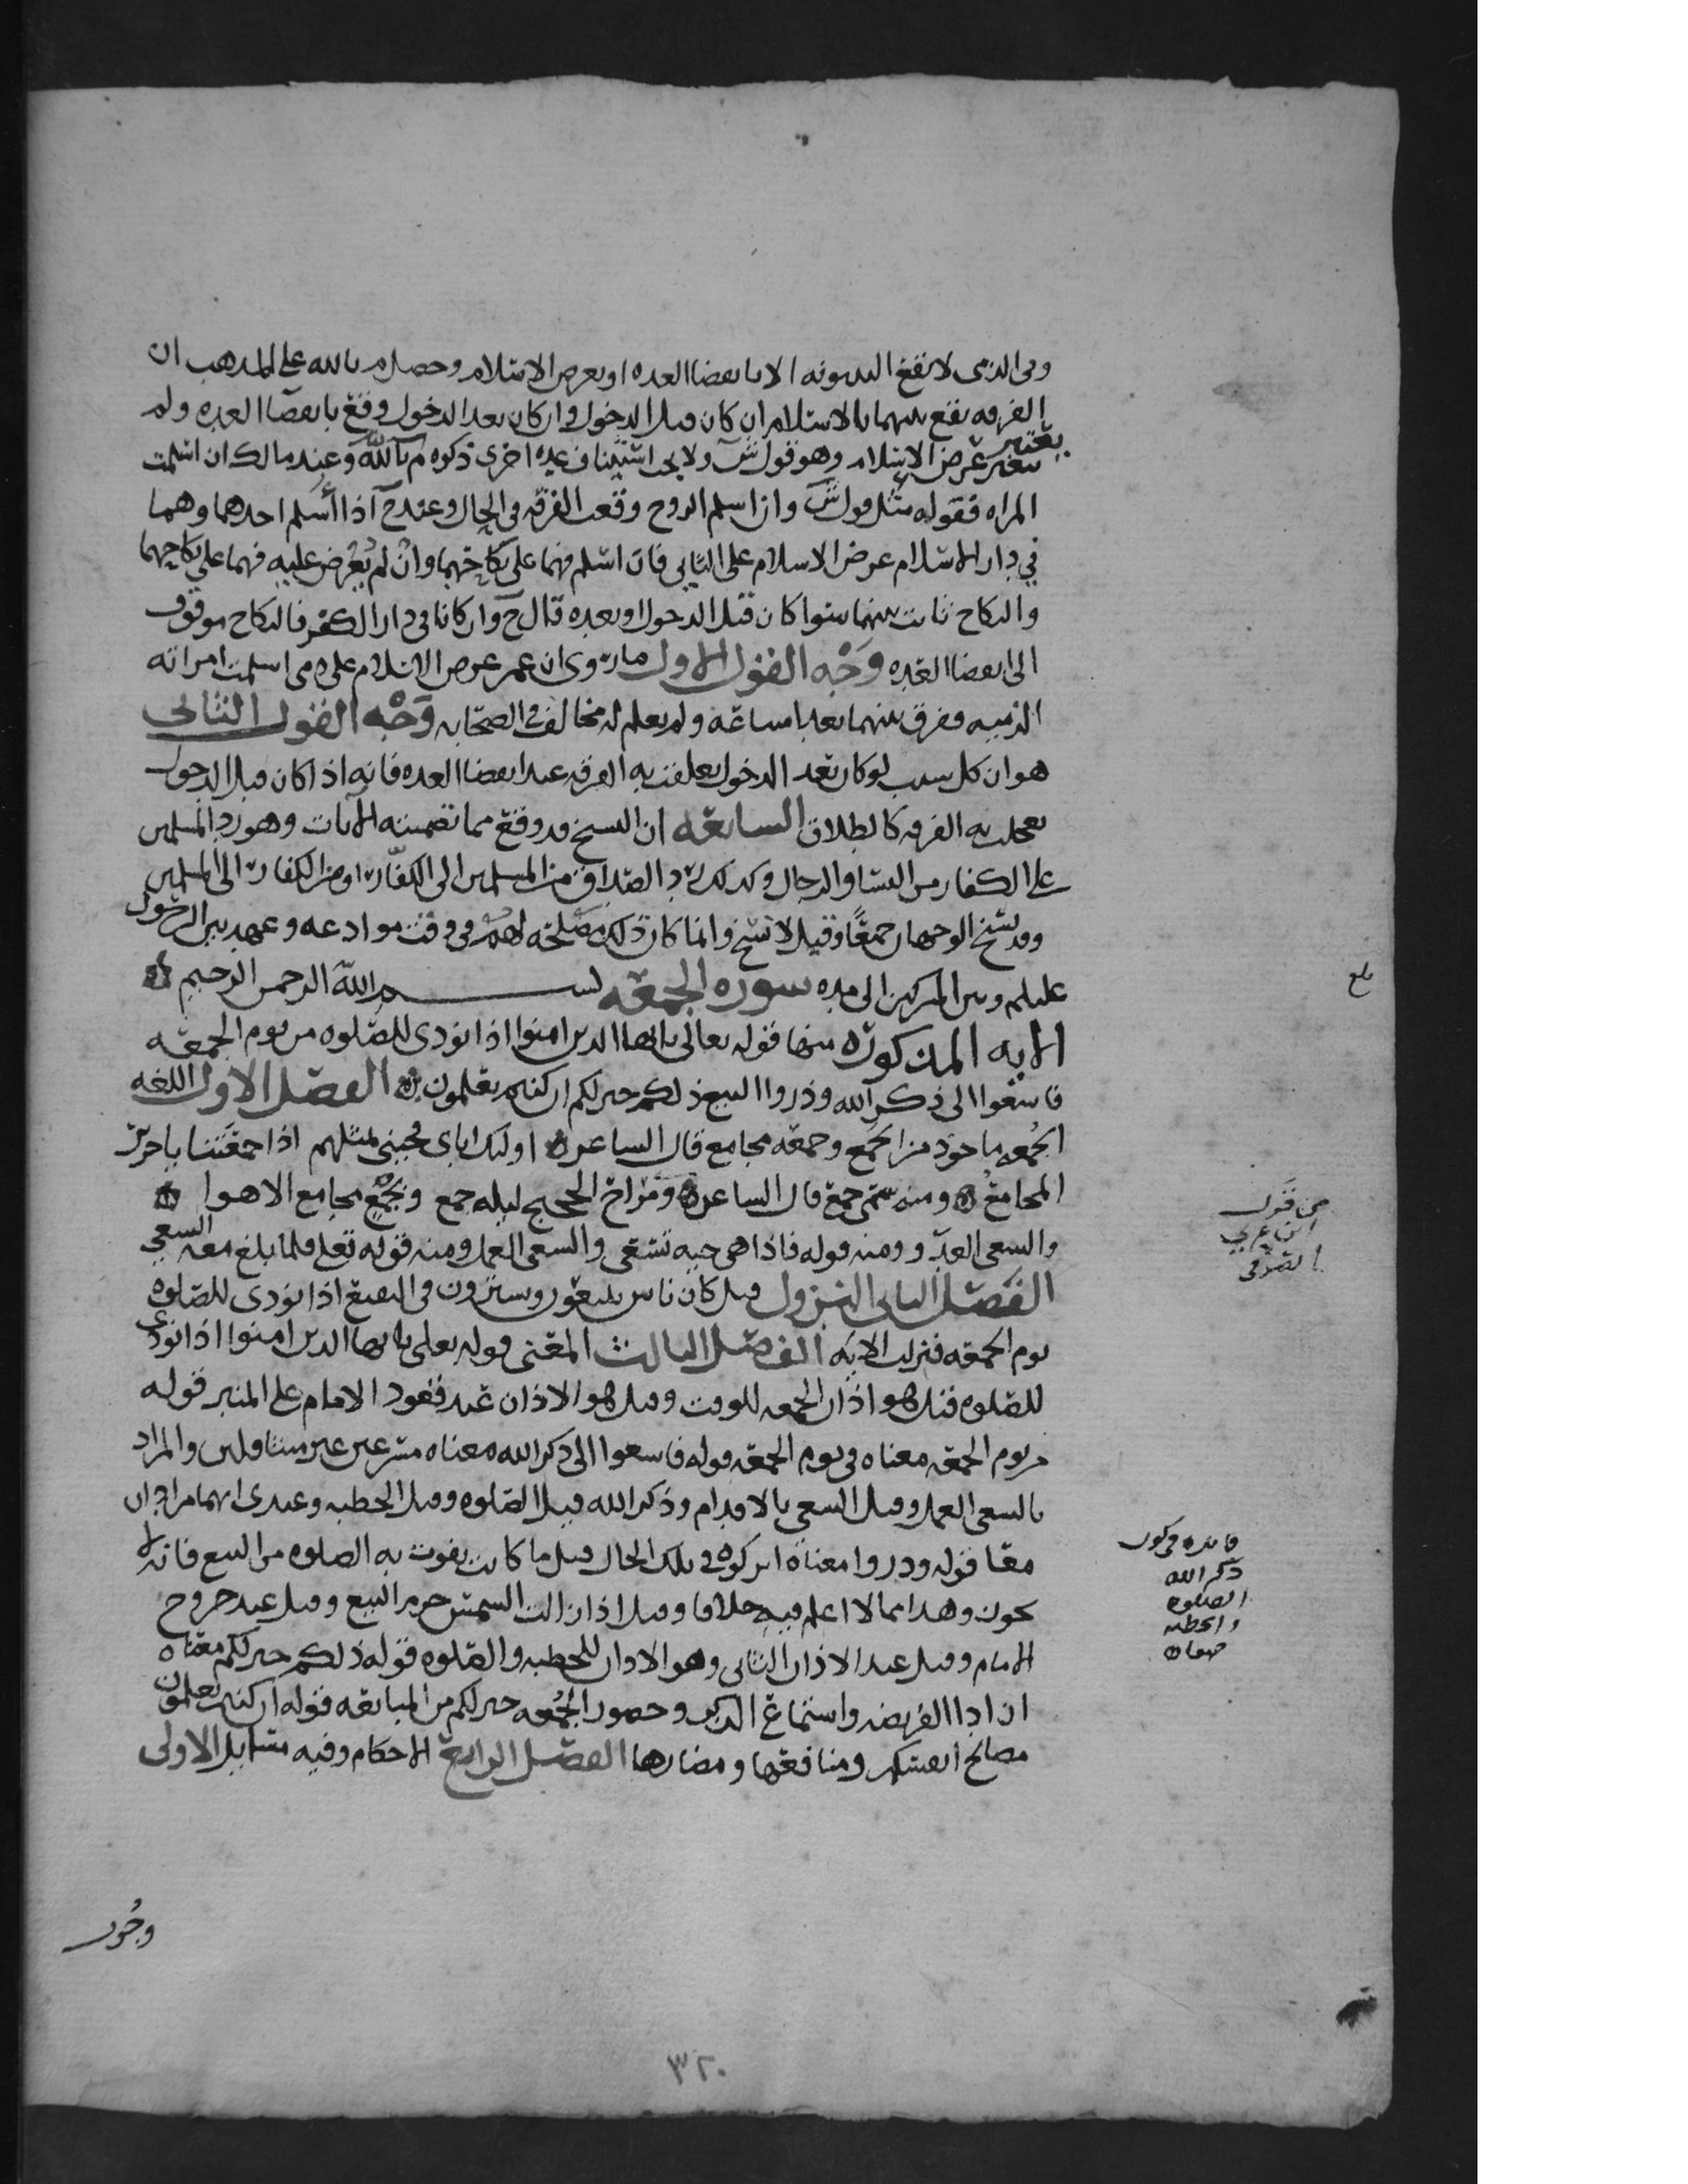 وفي الذمي لا تقع البينونه الا بانقضا العده او بعرض الاسلام وحصل م بالله على المذهب ان
الفرقه تقع بينهما بالاسلام ان كان قبل الدخول وان كان بعد الدخول وقع بانقضا العده ولم
يعتبر عرض الاسلام وهو قول ش ولا يجب استيناف عده اخرى ذكره م بالله وعند مالك ان اسلمت
المراه فقوله مثل قول ش وان اسلم الزوج وقعت الفرقه في الحال وعند ح اذا أسلم احدهما وهما
في دار الاسلام عرض الاسلام على الثاني فان اسلم فهما على نكاحهما وان لم يُعْرض عليه فهما على نكاحهما
والنكاح ثابت بينهما سوا كان قبل الدخول او بعده قال ح وان كانا في دار الكفر فالنكاح موقوف
الى انقضا العده وَجْه القول الاول ما روى ان عمر عرض الاسلام على من اسلمت امراته
الذميه وفرق بينهما بعد امتناعه ولم يعلم له مخالف في الصحابه وَجْه القول الثاني
هو ان كل سبب لو كان بعد الدخول تعلقت به الفرقه عند انقضا العده فانه اذا كان قبل الدخول
تعجلت به الفرقه كالطلاق السابعه ان النسخ قد وقع مما تضمنته الايات وهو رد المسلمين
على الكفار من النسا والرجال وكذلك رد الصداق من المسلمين الى الكفّار او من الكفار الى المسلمين
وقد نسخ الوجهان جمعًا وقيل لا نسخ وانما كان ذلك مصلحه لهم في وقت موادعه وعهد بين الرسول
عليلم وبين المشركين الى مده سوره الجمعه بسم الله الرحمن الرحيم
الايه المذكوره منها قوله تعالى يا ايها الذين امنوا اذا نودي للصلوه من يوم الجمعه
فاسعوا الى ذكر الله وذروا البيع ذلكم خير لكم ان كنتم تعلمون الفصل الاول اللغه
الجُمعه ماخوذ من الجَمع وجمعه مجامع قال الشاعر اولئك اباي فجيني بمثلهم اذا جمعَتنا يا جرير
المجامعُ ومنه سمى جمع قال الشاعر ومَرَاح الحجيج ليله جمع وبجَمْعٍ مجامع الاهوا
والسعي العدّو ومنه قوله فاذا هي حيه تسعى والسعي العمل ومنه قوله تعلى فلما بلغ معه السعي
الفصل الثاني النزول قيل كان ناس يبيعون ويشترون في البقيع اذا نودي للصلوه
يوم الجمعه فنزلت الايه الفصل الثالث المعنى قوله تعلى يا ايها الذين امنوا اذا نودي
للصلوه قيل هو اذان الجمعه للوقت وقيل هو الاذان عند قعود الامام على المنبر قوله
من يوم الجمعه معناه في يوم الجمعه قوله فاسعوا الى ذكر الله معناه مسرعين غير متثاقلين والمراد
بالسعي العمل وقيل السعي بالاقدام وذكر الله قيل الصلوه وقيل الخطبه وعندي انهما مرادان
معًا قوله وذروا معناه اتركوه في تلك الحال قيل ما كانت يفوت به الصلوه من البيع فانه لا
يجوز وهذا مما لا اعلم فيه خلافا وقيل اذا زالت الشمس حرم البيع وقيل عند خروج
الامام وقيل عند الاذان الثاني وهو الاذان للخطبه والصلوه قوله ذلكم خير لكم معناه
ان ادا الفريضه واستماع الذكر وحضور الجُمعه خير لكم من المبايعه قوله ان كنتم تعلمون
مصالح انفسكم ومنافعها ومضارها الفصل الرابع الاحكام وفيه مسايل الاولى
وجُوب
بلغ
من قول
ابن عربي
الصوفي
فايده في كون
ذكر الله
الصلوه
والخطبه
٣٢٠